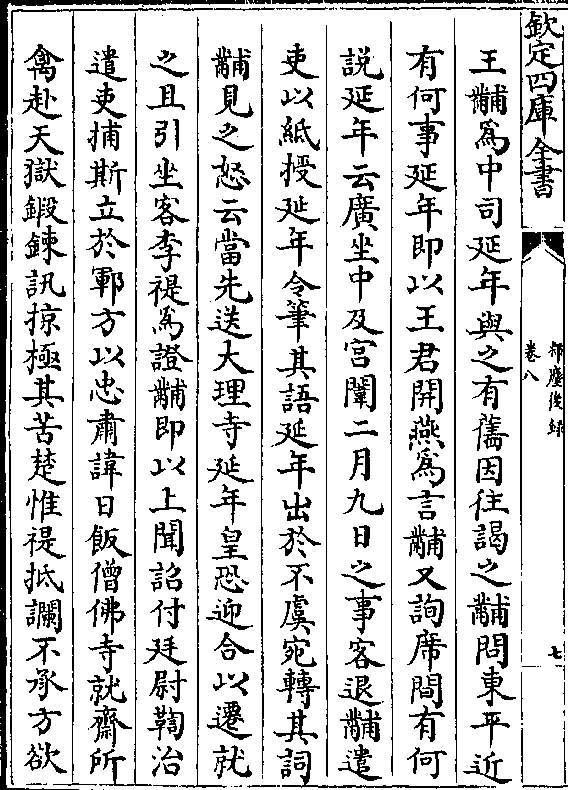 欽定四庫全書
揮麈後錄
卷八
七
王黼為中司延年與之有舊因往謁之黼問東平近
有何事延年即以王君開燕為言黼又詢席間有何
説延年云廣坐中及宮闈二月九日之事客退黼遣
吏以紙授延年令筆其語延年出於不虞宛轉其詞
黼見之怒云當先送大理寺延年皇恐迎合以遷就
之且引坐客李禔為證黼即以上聞詔付廷尉鞫治
遣吏捕斯立於鄆方以忠肅諱日飯僧佛寺就齋所
禽赴天獄鍛鍊訊掠極其苦楚惟禔抵讕不承方欲